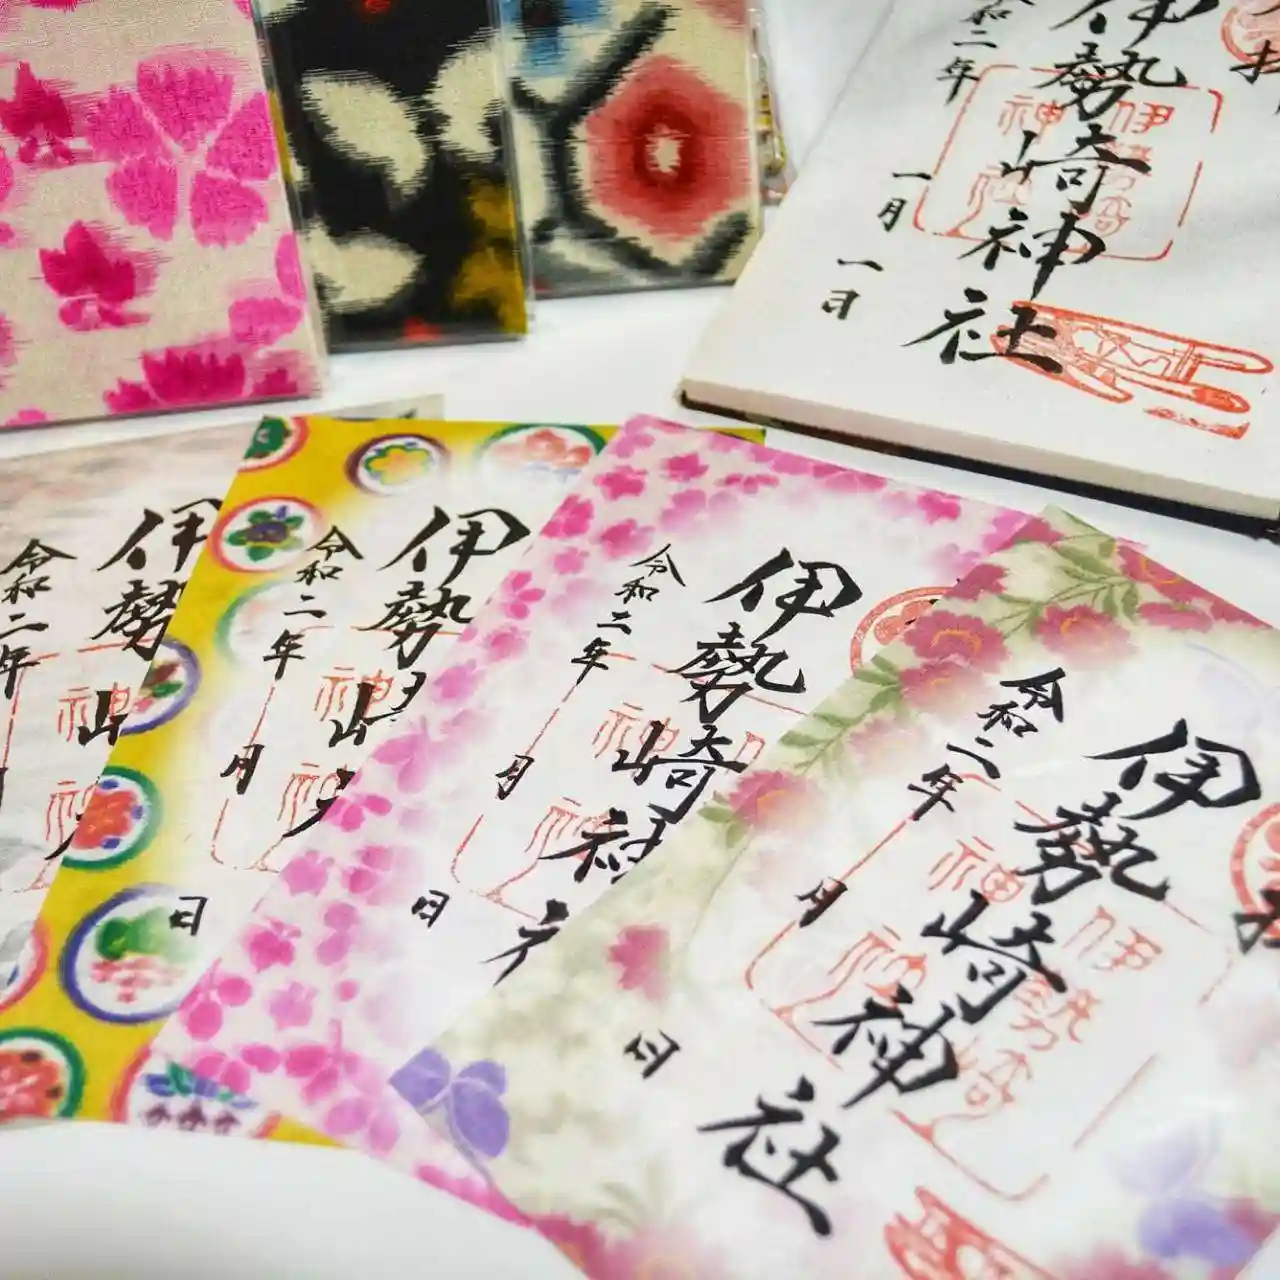 伊勢崎神社
令和二年
一月
一日
伊勢
令和二年
伊勢
令和二年
月
日
伊勢崎神社
令和二年
月
日
伊勢崎神社
令和二年
月
日